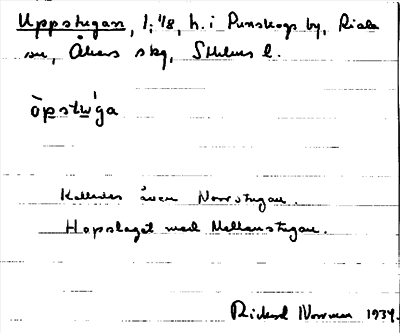 Uppstugan, 1:18, h. i Punskogs by, Riala
sn, Åkers skg, Sthlms l.
òpstẁ'ga
Kallades även Norrstugan.
Hopslaget med Mellanstugan.
Rickard Norrman 1934.